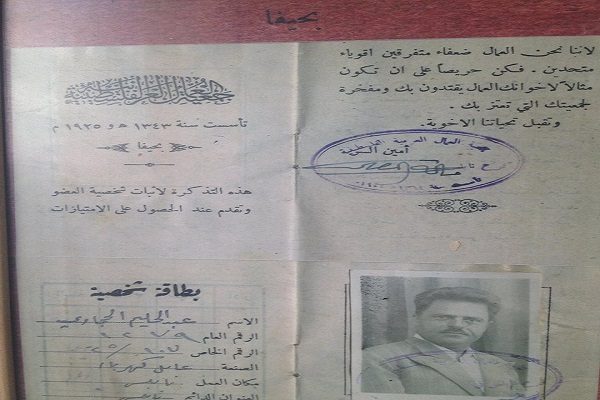 بحيفا
جمعية العمال العربية الفلسطينية
تأسست سنة ١٣٤٣ هـ و ١٩٢٥ م
بحيفا
هذه التذكرة لاثبات شخصية العضو
وتقدم عند الحصول على الامتيازات
لاننا نحن العمال ضعفاء متفرقين اقوياء
متحدين . فكن حريصاً على ان تكون
مثالاً لاخوانك العمال يقتدون بك ومفخرة
لجمعيتك التي تعتز بك .
وتقبل تحياتنا الاخوية .
أمين السر
بطاقة شخصية
الاسم عبد الحليم
الرقم العام ٩٢٧٩
الرقم الخاص
الصنعة عامل كهرباء
مكان العمل نابلس
العنوان الدائم نابلس